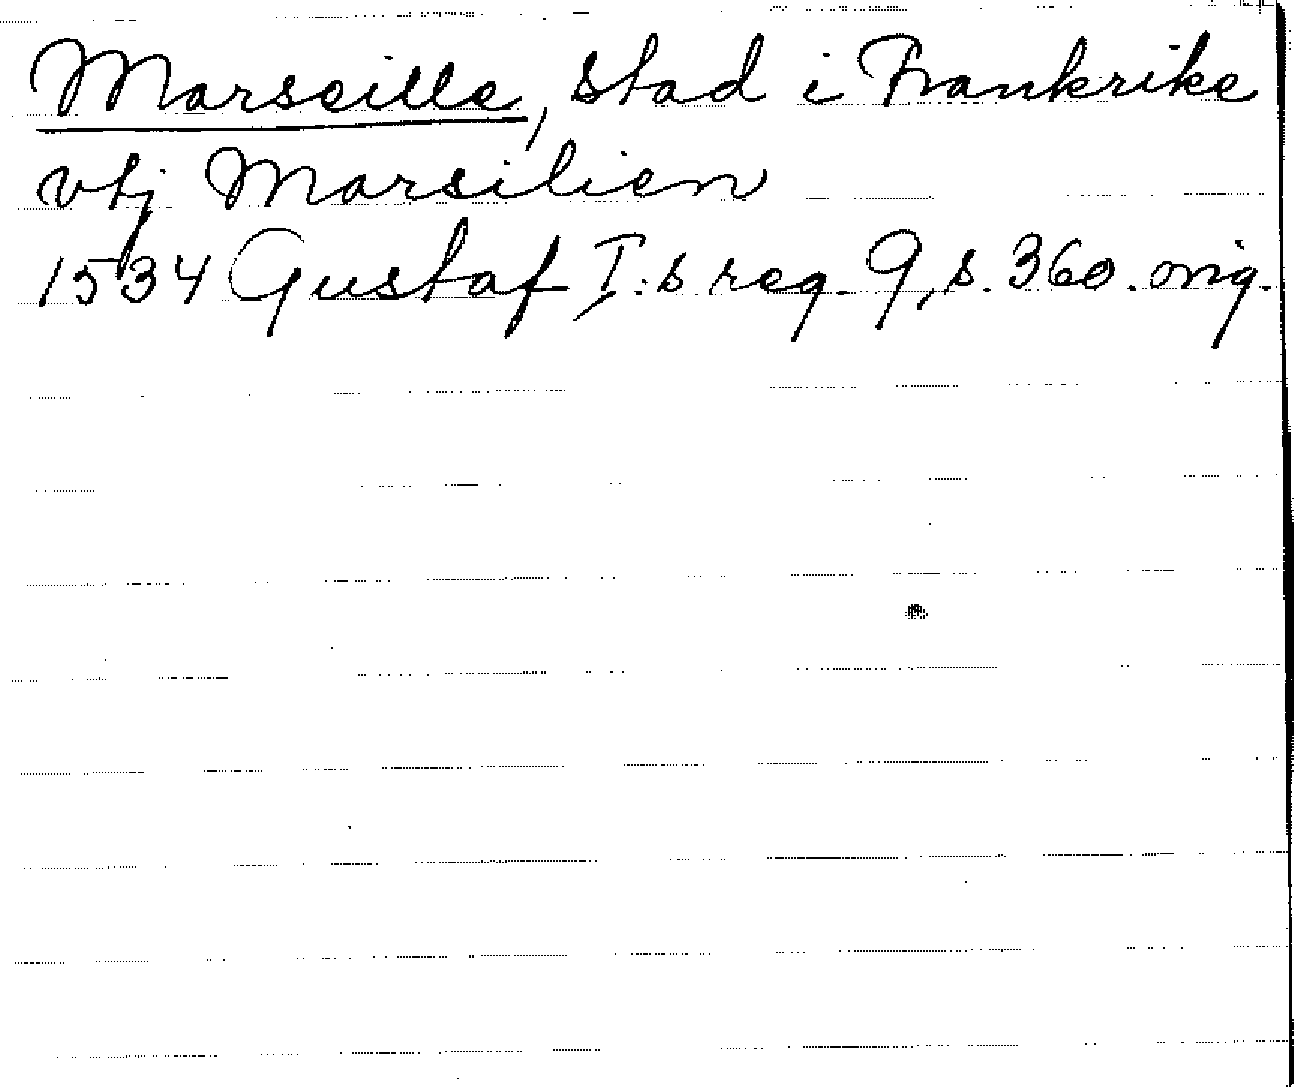 Marseille, stad i Frankrike
vtj Marsilien
1534 Gustaf I:s reg. 9, s. 360. orig.